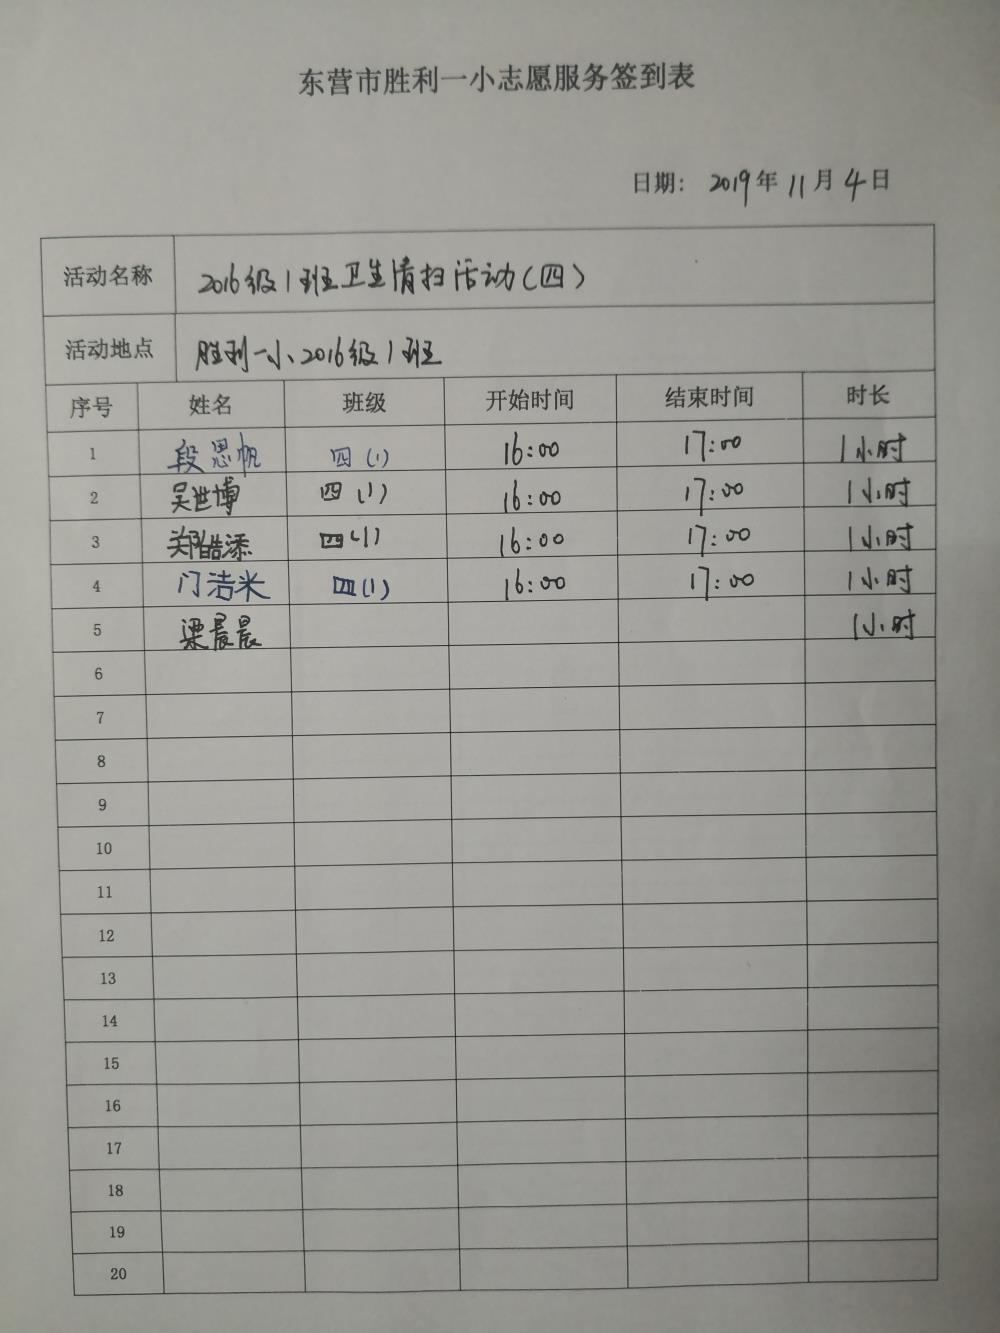 东营市胜利一小志愿服务签到表
日期: 2019年11月4日
活动名称 2016级1班卫生清扫活动(四)
活动地点 胜利一小2016级1班
序号 姓名 班级 开始时间 结束时间 时长
1 段思帆 四(1) 16:00 17:00 1小时
2 吴世博 四(1) 16:00 17:00 1小时
3 郑皓添 四(1) 16:00 17:00 1小时
4 门洁米 四(1) 16:00 17:00 1小时
5 梁晨晨 1小时
6
7
8
9
10
11
12
13
14
15
16
17
18
19
20